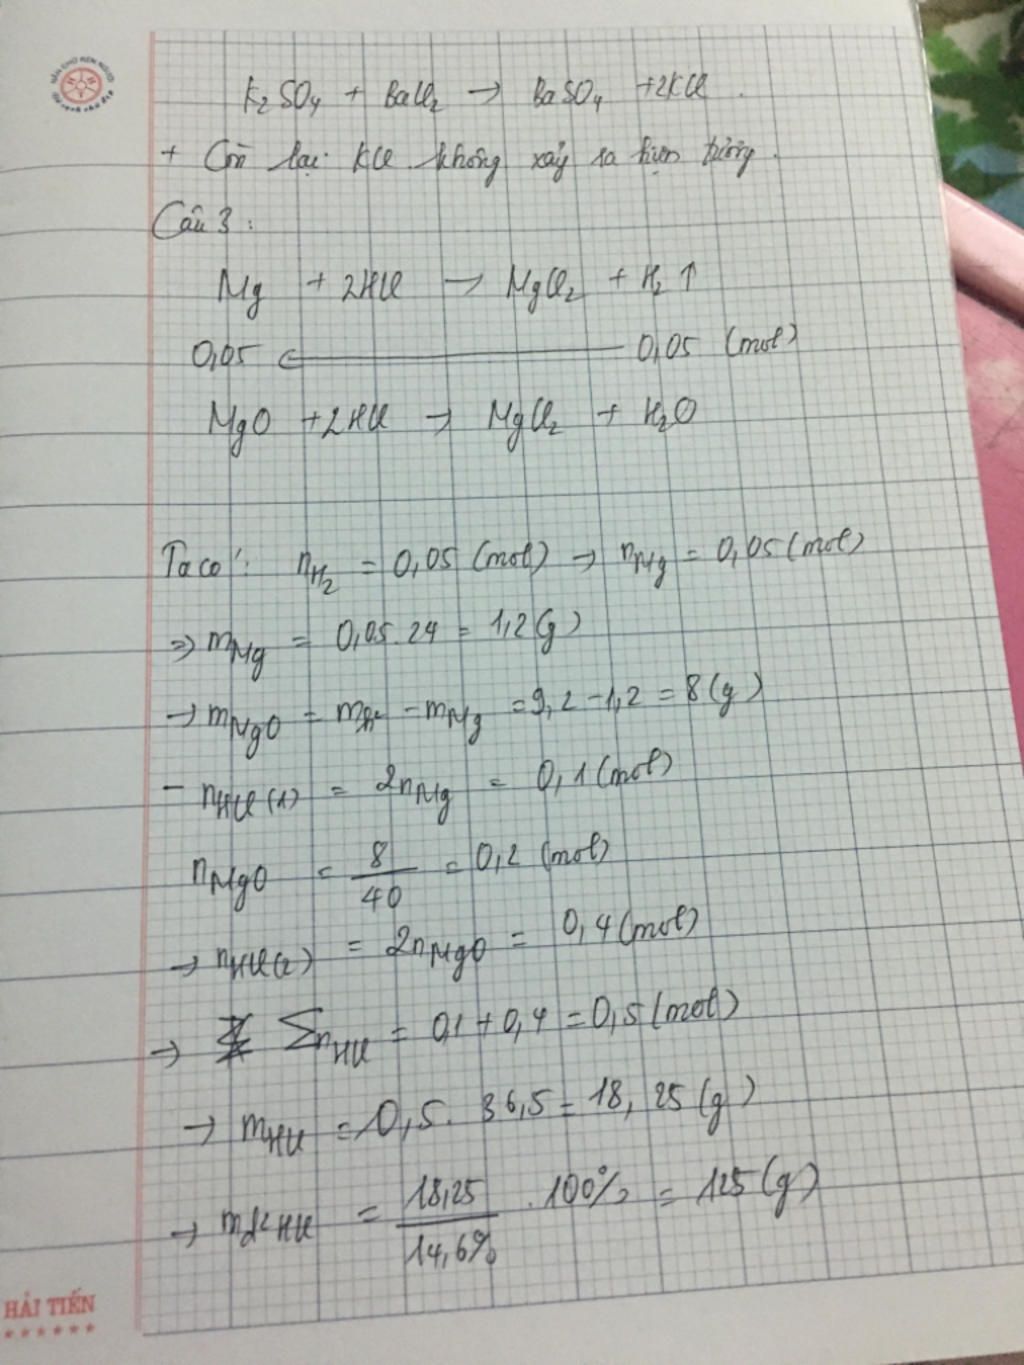 K₂SO₄ + BaCl₂ → BaSO₄ + 2KCl.
+ Còn lại KCl không xảy ra hiện tượng.
Câu 3:
Mg + 2HCl → MgCl₂ + H₂ ↑
0,05 ← 0,05 (mol)
MgO + 2HCl → MgCl₂ + H₂O
Ta có: nH₂ = 0,05 (mol) → nMg = 0,05 (mol)
⇒ mMg = 0,05.24 = 1,2 (g)
→ mMgO = mhh - mMg = 9,2 - 1,2 = 8 (g)
- nHCl (1) = 2nMg = 0,1 (mol)
nMgO = 8/40 = 0,2 (mol)
→ nHCl(2) = 2nMgO = 0,4 (mol)
→ ΣnHCl = 0,1 + 0,4 = 0,5 (mol)
→ mHCl = 0,5. 36,5 = 18,25 (g)
→ mddHCl = 18,25/14,6% . 100% = 125 (g)
HẢI TIẾN